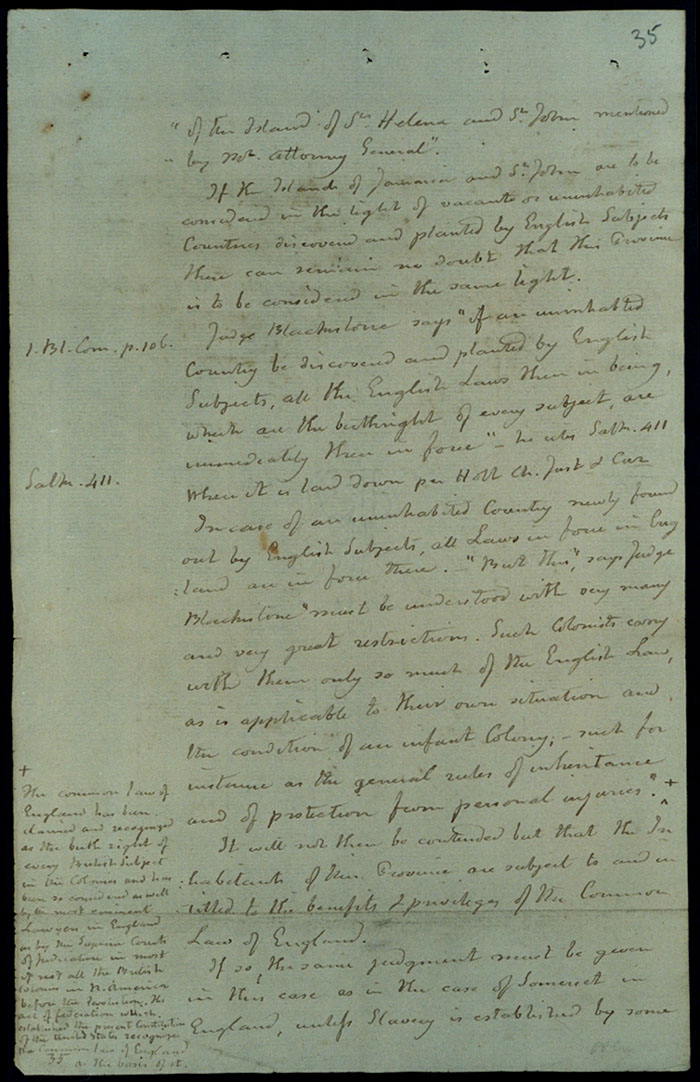 35
"of the Island of St. Helena and St. John mentioned
"by Mr. attorney General".
If the Islands of Jamaica and St. John are to be
considered in the light of vacante or uninhabited
Countries discovered and planted by English Subjects
there can remain no doubt that this Province
is to be considered in the same light.
1. Bl. Com. p. 106.
Judge Blackstone says "if an uninhabited
Country be discovered and planted by English
Subjects, all the English Laws then in being,
which are the birthright of every subject, are
immediately then in force" – he cites Salk. 411
Salk. 411.
When it is laid down per Holt Ch. Just & Cur
In case of an uninhabited Country newly found
out by English Subjects, all Laws in force in Eng
:land are in force there. – "But this", says Judge
Blackstone "must be understood with very many
and very great restrictions. Such Colonists carry
with them only so much of the English Law,
as is applicable to their own situation and
the condition of an infant Colony; – such for
instance as the general rules of inheritance
and of protection from personal injuries". +
It will not then be contended but that the In
:habitants of this Province are subject to and in
:titled to the benefits & privileges of the Common
Law of England.
If so, the same judgment must be given
in this case as in the case of Somerset in
England, unless Slavery is established by some
+
The common law of
England has been
claimed and recognized
as the birth right of
every British Subject
in the Colonies and has
been so considered as well
by the most eminent
Lawyers in England
as by the Supreme Courts
of Judicature in most
if not all the British
colonies in N. America
before the Revolution. The
act of federation which
established the present Constitution
of the United States recognizes
the Common law of England
as the basis of it.
35